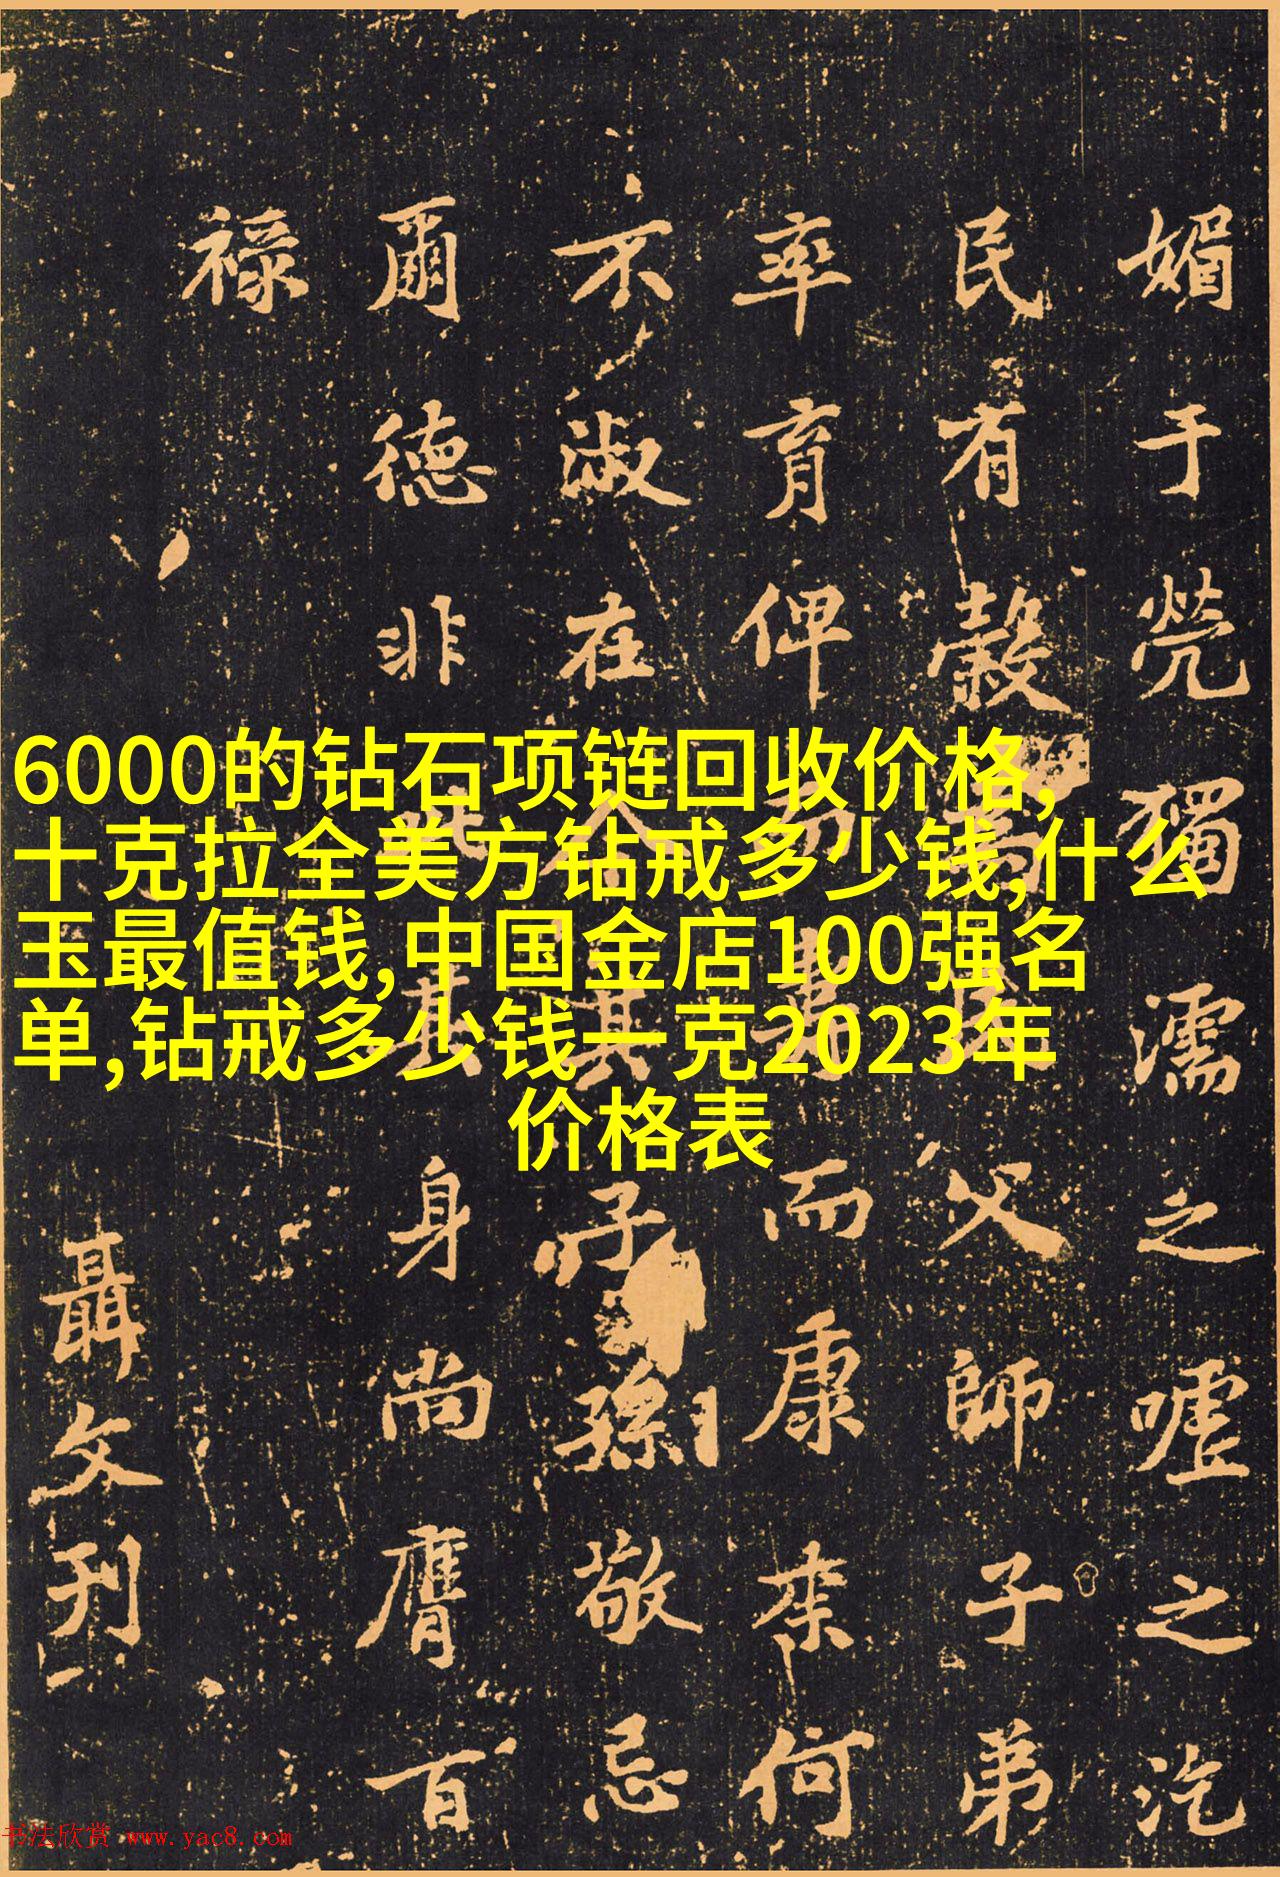 6000的钻石项链回收价格,
十克拉全美方钻戒多少钱,什么
玉最值钱,中国金店100强名
单,钻戒多少钱一克2023年
价格表
媚于煢獨濡之嘘之汔
民有穀父師子弟
率育俾而康来何
不淑在其子孫敬忌
爾德非其身尚膺百
祿
聶文刊
书法欣赏 www.yac8.com